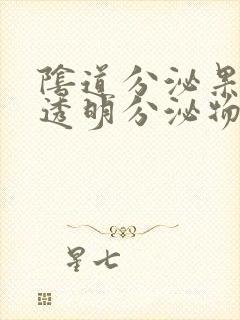 陰道分泌果
透明分泌物
星七